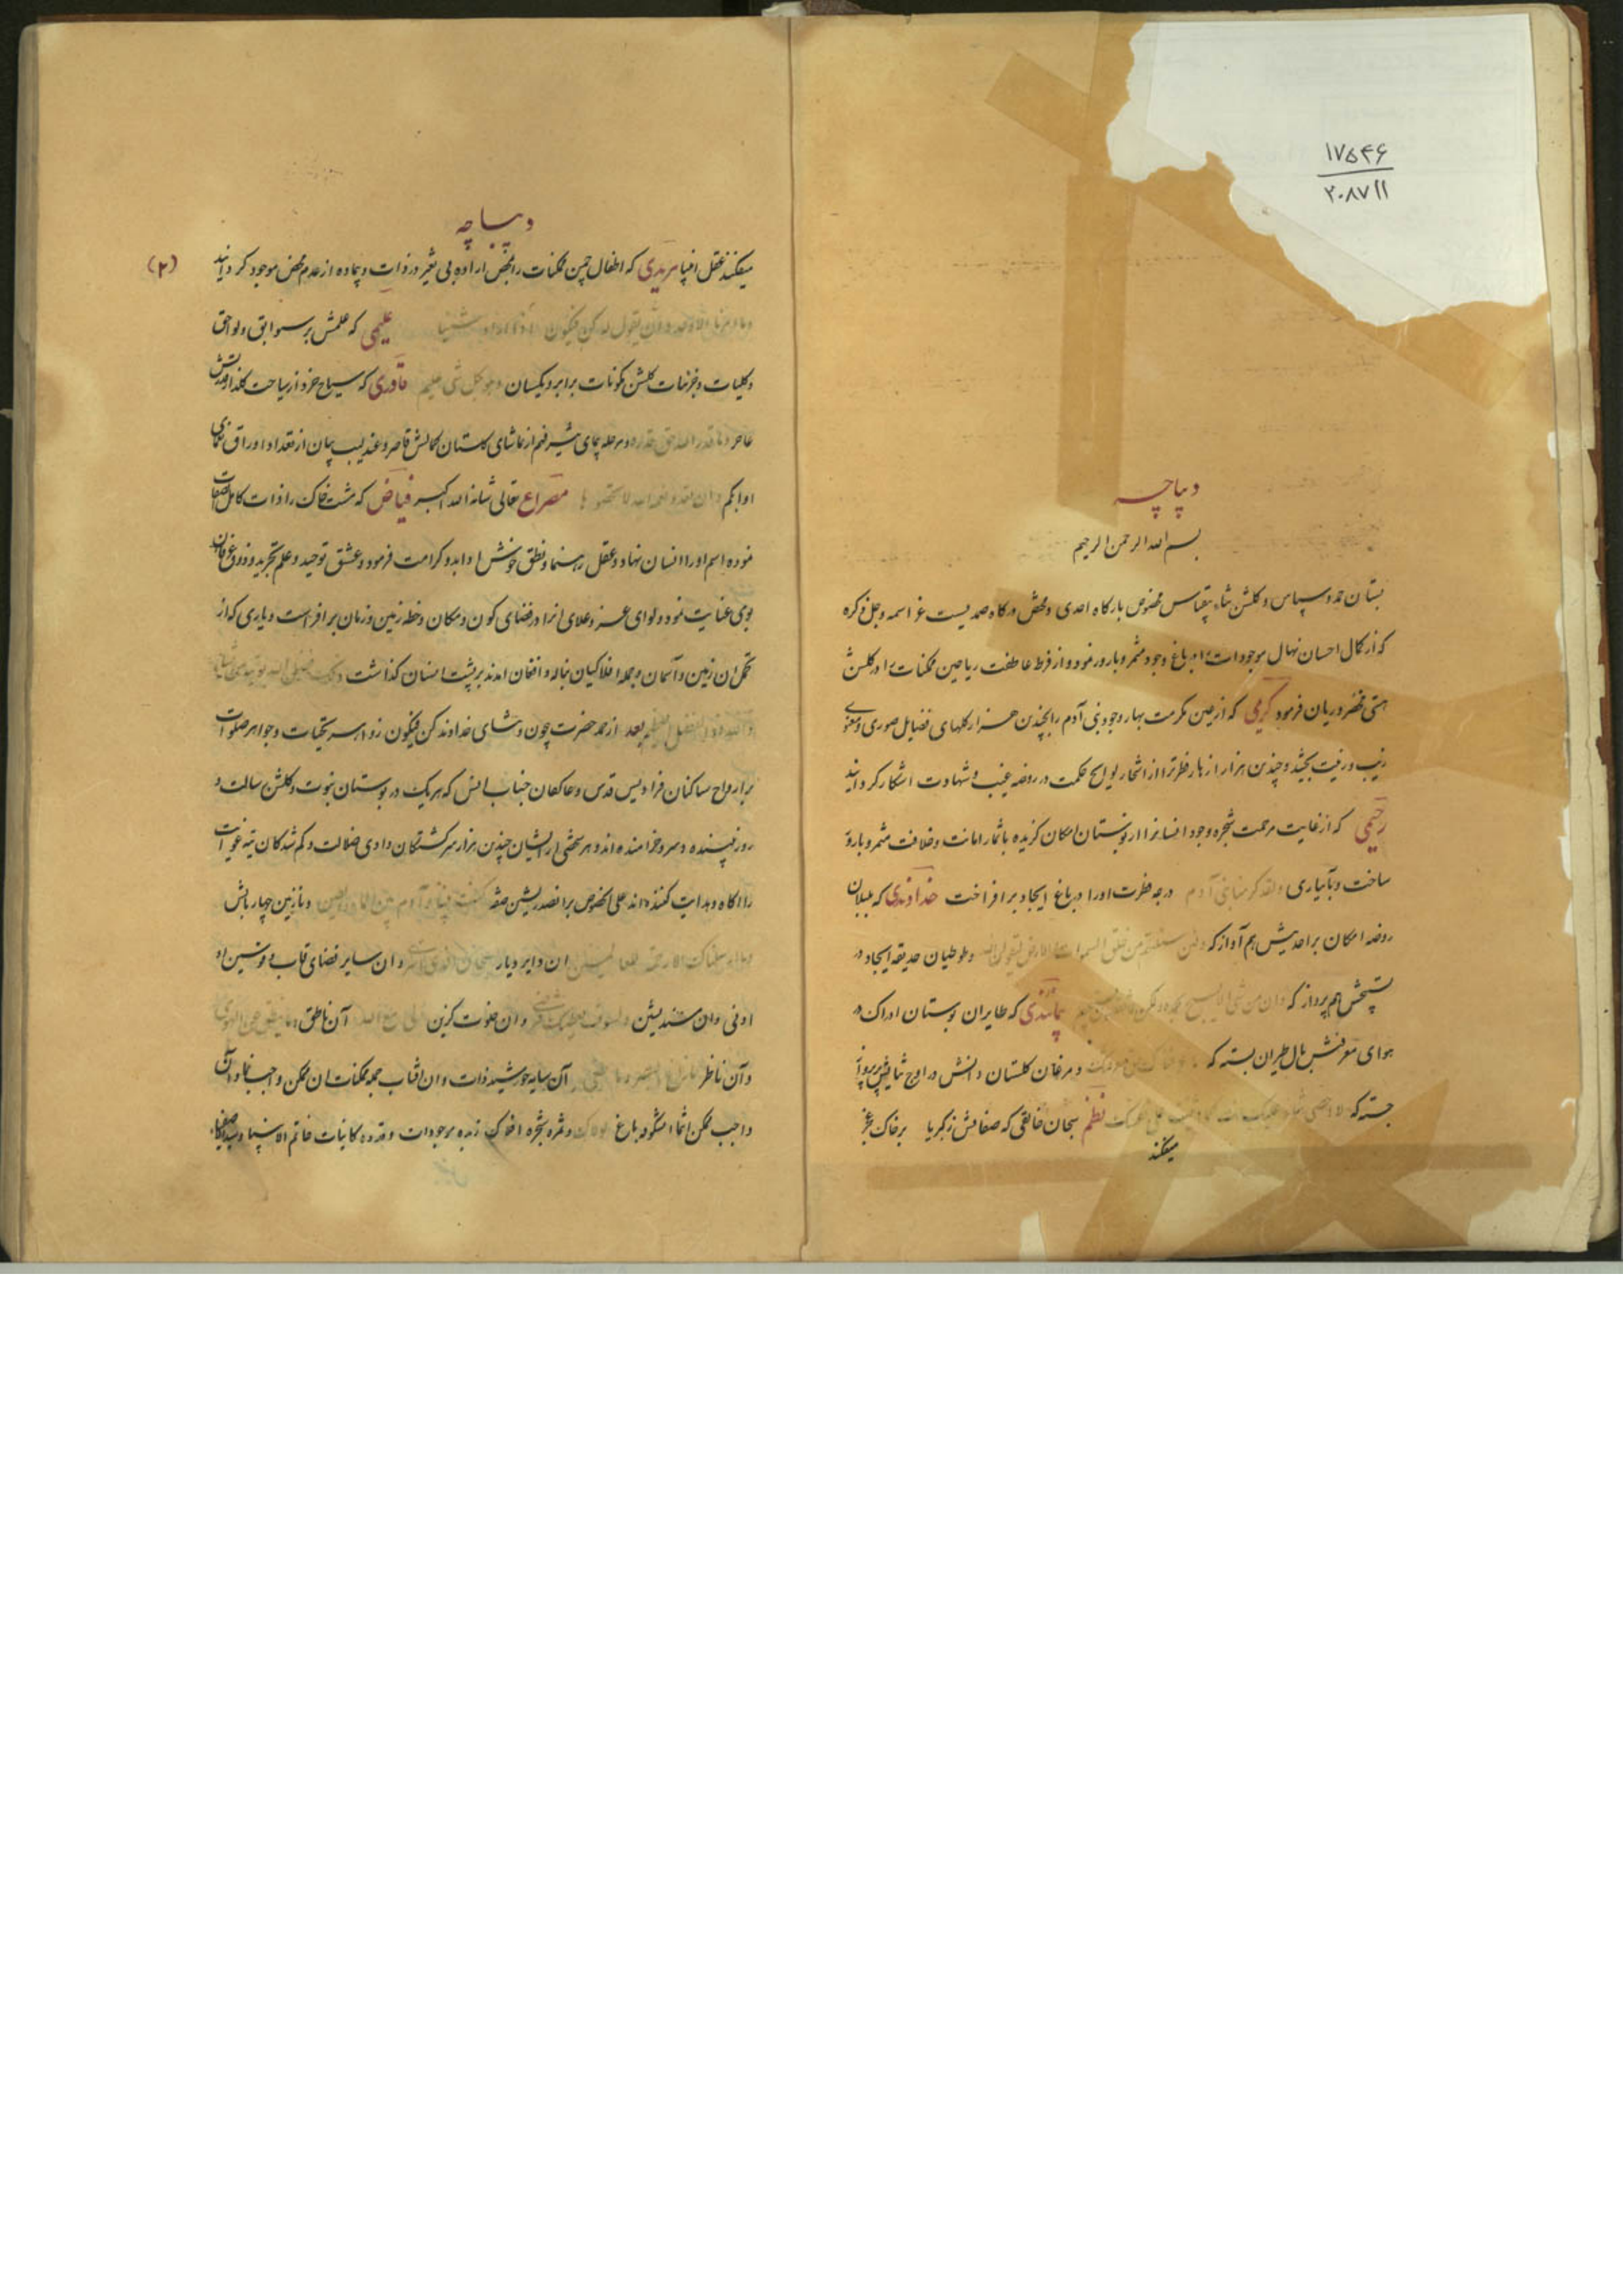 ۱۷۵۴۶
۲۰۸۷۱۱
دیباچه
بسم الله الرحمن الرحیم
بستان حمد و سپاس و گلشن ثناء بیقیاس مخصوص بارگاه احدی و مختص درگاه صمدیست عز اسمه و جل ذکره
که از کمال احسان نهال موجودات را در باغ وجود مثمر و بارور نمود و از فرط عاطفت ریاحین ممکنات را در گلشن
هستی مخضر و ریان فرمود کریمی که از عین مکرمت بهار وجود بنی آدم را بچندین هزار گلهای فضایل صوری و معنوی
زیب و زینت بخشید و چندین هزار ازهار فطرترا از اشجار لوایح حکمت در روضه غیب و شهادت اشکار کردانید
رحیمی که از غایت مرحمت شجره وجود انسانرا از بوستان امکان گزیده باثمار امانت و خلافت مثمر و بارور
ساخت و بآبیاری ولقد کرمنا بنی آدم درجه فطرت اورا در باغ ایجاد برافراخت خداوندی که بلبلان
روضه امکان براحدیتش هم آواز که ولئن سئلتهم من خلق السموات والارض لیقولن الله و طوطیان حدیقه ایجاد در
تسبیحش هم پرواز که وان من شی الا یسبح بحمده ولکن لا تفقهون تسبیحهم بمانندی که طایران بوستان ادراک در
هوای معرفتش بال طیران بسته که ما عرفناک حق معرفتک و مرغان گلستان دانش در اوج ثنایش پر پرواز
جسته که لا احصی ثناء علیک انت کما اثنیت علی نفسک نظم سبحان خالقی که صفاتش ز کبریا برخاک عجز
میفکند
دیباچه
(۲)
میفکند عقل انبیا مریدی که اطفال چمن ممکنات را بمحض اراده بی تغییر در ذات و بیماده از عدم محض موجود گردانید
علیمی که علمش بر سوابق و لواحق
و کلیات و جزئیات گلشن مکونات برابر و یکسان وهو بکل شی علیم قادری که سیاح خرد از سیاحت گلزار قدرتش
عاجز وما قدروا الله حق قدره و مرحله پیمای بشر فهم از تماشای گلستان کمالش قاصر و عندلیب بیان از تعداد اوراق نعمای
او ابکم وان تعدوا نعمة الله لا تحصوها مصراع تعالی شانه الله اکبر فیاض که مشت خاک را ذات کامل الصفات
نموده اسم اورا انسان نهاد و عقل رهنما و نطق خوش ادا بدو کرامت فرمود و عشق توحید و علم تجرید و ذوق عرفان
بوی عنایت نمود و لوای عز و علای انرا در فضای کون و مکان و خطه زمین و زمان برافراست و باری که از
تحمل ان زمین و آسمان و جمله افلاکیان بناله و افغان امدند بر پشت انسان گذاشت ذلک فضل الله یوتیه من یشاء
والله ذو الفضل العظیم بعد از حمد حضرت چون و ثنای خداوند کن فیکون زواهر تحیات و جواهر صلوات
بر ارواح ساکنان فرادیس قدس و عاکفان جناب انس که هر یک در بوستان نبوت و گلشن رسالت و
روزبهنده و سرو خرامنده اند و هر شخصی از ایشان چندین هزار سرگشتگان وادی ضلالت و گم شدگان تیه غوایت
را اگاه و هدایت کننده اند علی الخصوص بر انصدرنشین صفه کنت نبیا وآدم بین الماء والطین و نازنین چهار بالش
وما ارسلناک الا رحمة للعالمین ان دایر دیار سبحان الذی اسری و ان سایر فضای قاب قوسین او
ادنی و ان مسندنشین ولسوف یعطیک ربک فترضی و ان خلوت گزین لی مع الله آن ناطق وما ینطق عن الهوی
و آن ناظر ما زاغ البصر وما طغی آن سایه خورشید ذات و ان افتاب جمله ممکنات ان ممکن واجب نما و آن
واجب ممکن انما شکوفه باغ لولاک و ثمره شجره افلاک زبده موجودات و قدوه کاینات خاتم الانبیا و سید الاصفیاء